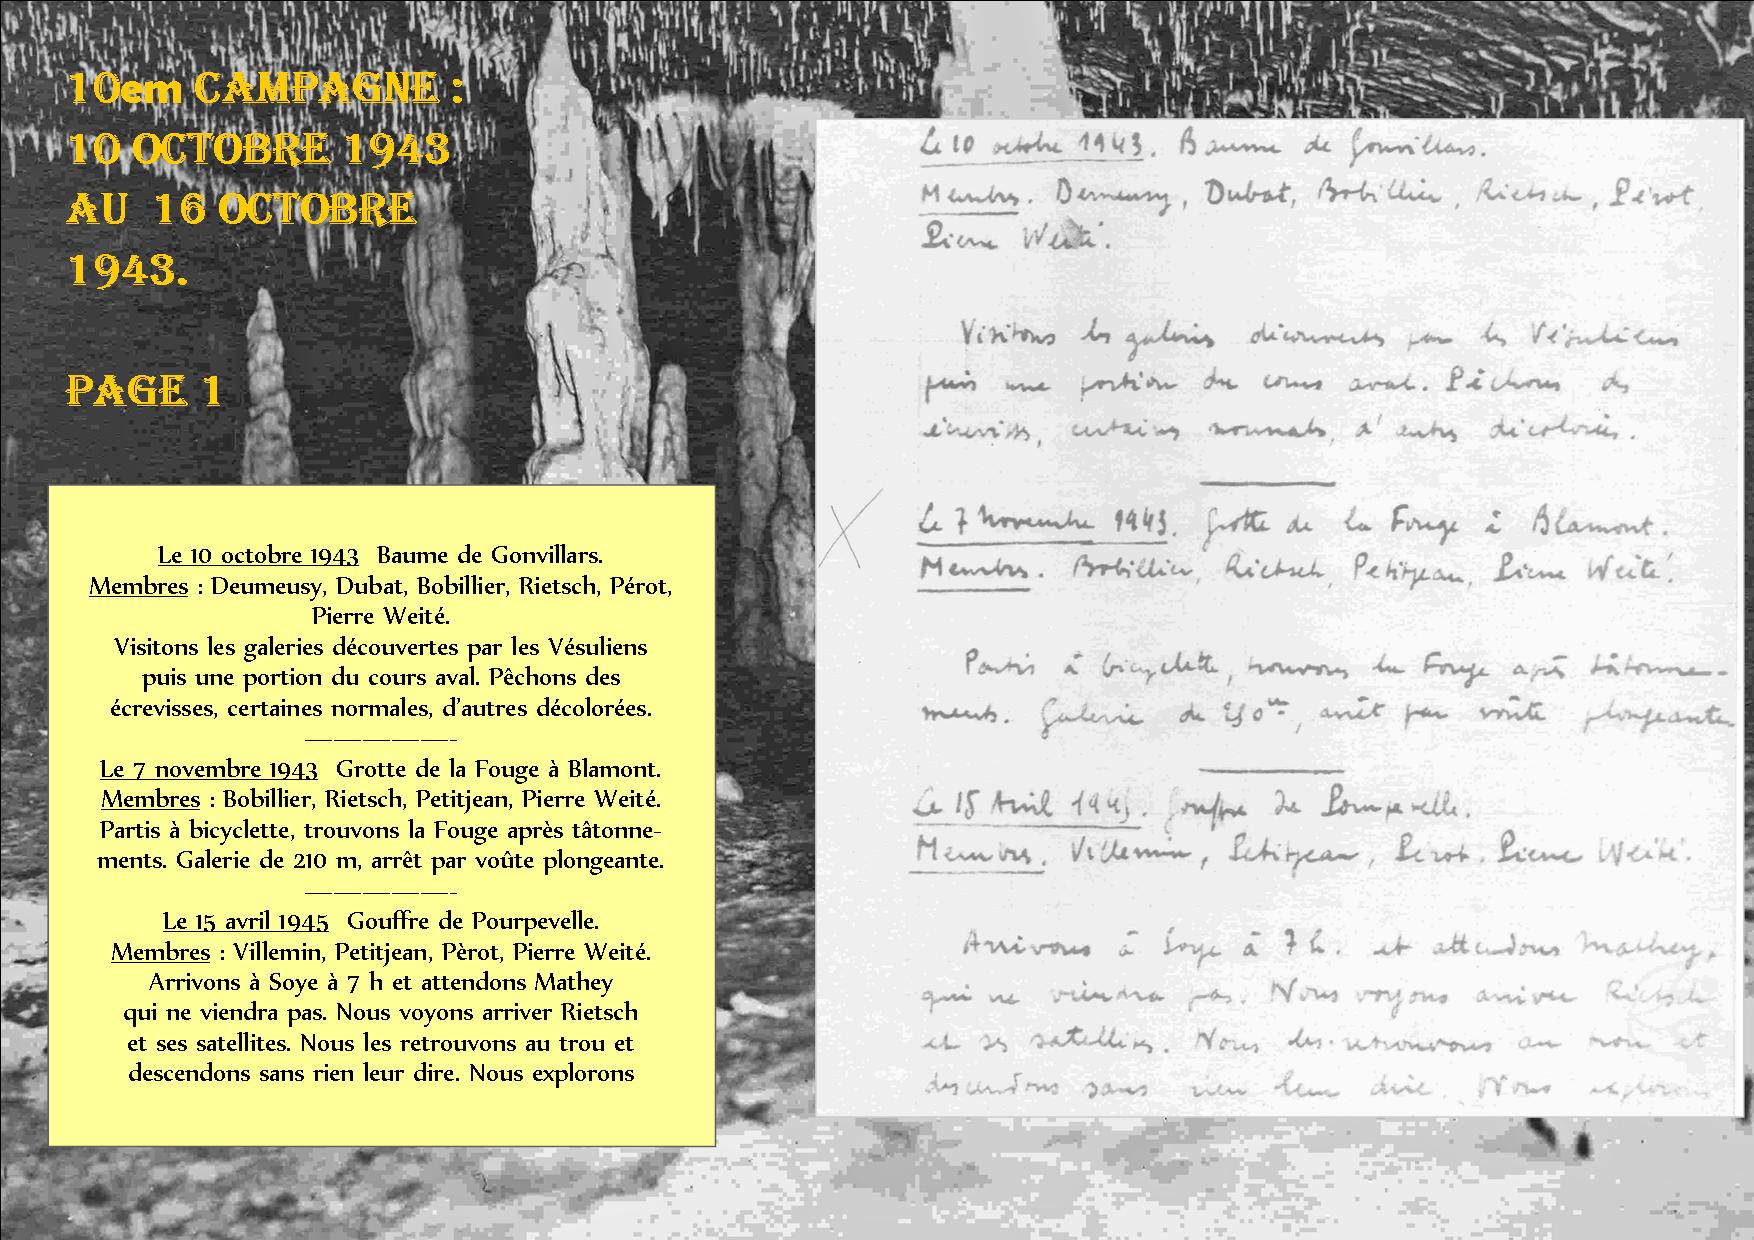 10em CAMPAGNE :
10 OCTOBRE 1943
AU 16 OCTOBRE
1943.
PAGE 1
Le 10 octobre 1943 Baume de Gonvillars.
Membres : Deumeusy, Dubat, Bobillier, Rietsch, Pérot,
Pierre Weité.
Visitons les galeries découvertes par les Vésuliens
puis une portion du cours aval. Pêchons des
écrevisses, certaines normales, d’autres décolorées.
—————————-
Le 7 novembre 1943 Grotte de la Fouge à Blamont.
Membres : Bobillier, Rietsch, Petitjean, Pierre Weité.
Partis à bicyclette, trouvons la Fouge après tâtonne-
ments. Galerie de 210 m, arrêt par voûte plongeante.
—————————-
Le 15 avril 1945 Gouffre de Pourpevelle.
Membres : Villemin, Petitjean, Pèrot, Pierre Weité.
Arrivons à Soye à 7 h et attendons Mathey
qui ne viendra pas. Nous voyons arriver Rietsch
et ses satellites. Nous les retrouvons au trou et
descendons sans rien leur dire. Nous explorons
Le 10 octobre 1943. Baume de Gonvillars.
Membres. Demeusy, Dubat, Bobillier, Rietsch, Pérot,
Pierre Weité.
Visitons les galeries découvertes par les Vésuliens
puis une portion du cours aval. Pêchons des
écrevisses, certaines normales, d'autres décolorées.
Le 7 Novembre 1943. Grotte de la Fouge à Blamont.
Membres. Bobillier, Rietsch, Petitjean, Pierre Weité.
Partis à bicyclette, trouvons la Fouge après tâtonne-
ments. Galerie de m, arrêt par voûte plongeante.
Le 15 Avril 1945. Gouffre de Pourpevelle.
Membres. Villemin, Petitjean, Pérot, Pierre Weité.
Arrivons à Soye à 7 h. et attendons Mathey,
qui ne viendra pas. Nous voyons arriver Rietsch
et ses satellites. Nous les retrouvons au trou et
descendons sans rien leur dire. Nous explorons